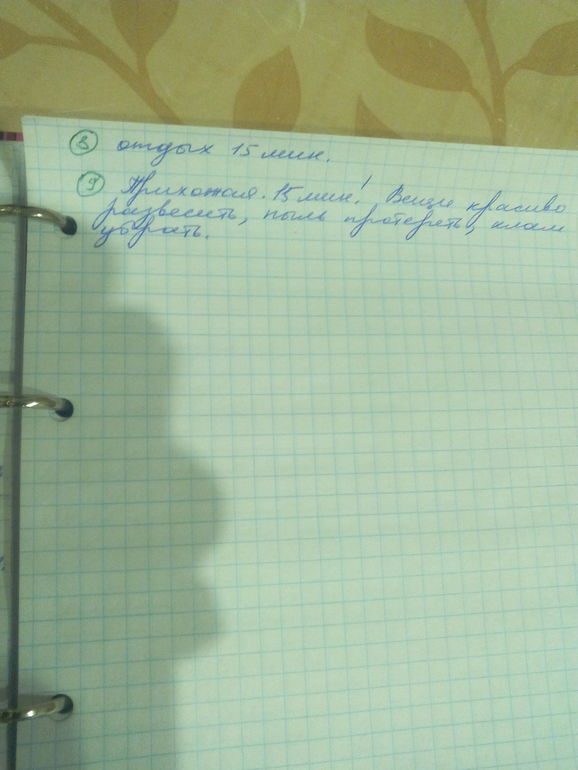 8 отдых 15 мин.
9 Прихожая. 15 мин! Вещи красиво
развесить, пыль протереть, хлам
убрать.